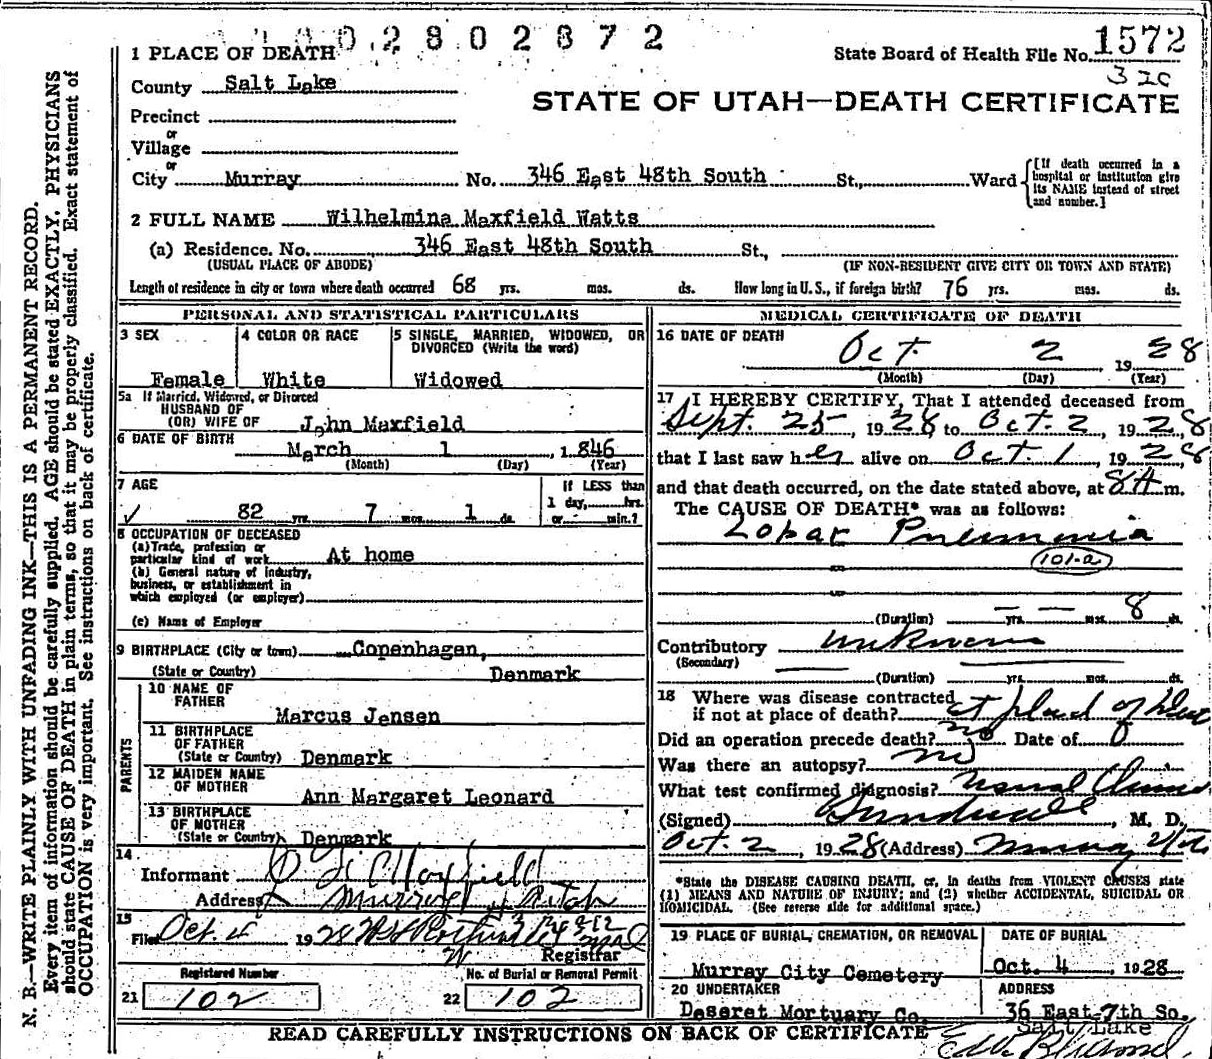 02802872
1 PLACE OF DEATH
State Board of Health File No. 1572
County Salt Lake
32c
STATE OF UTAH—DEATH CERTIFICATE
Precinct
or
Village
or
City Murray No. 346 East 48th South St., Ward
[If death occurred in a
hospital or institution give
its NAME instead of street
and number.]
2 FULL NAME Wilhelmina Maxfield Watts
(a) Residence. No. 346 East 48th South St.,
(USUAL PLACE OF ABODE) (IF NON-RESIDENT GIVE CITY OR TOWN AND STATE)
Length of residence in city or town where death occurred 68 yrs. mos. ds. How long in U. S., if foreign birth? 76 yrs. mos. ds.
PERSONAL AND STATISTICAL PARTICULARS
3 SEX 4 COLOR OR RACE 5 SINGLE, MARRIED, WIDOWED, OR
DIVORCED (Write the word)
Female White Widowed
5a If Married, Widowed, or Divorced
HUSBAND OF
(OR) WIFE OF John Maxfield
6 DATE OF BIRTH
March 1 , 1846
(Month) (Day) (Year)
7 AGE If LESS than
1 day, hrs.
82 yrs. 7 mos. 1 ds. or min.?
8 OCCUPATION OF DECEASED
(a) Trade, profession or
particular kind of work At home
(b) General nature of industry,
business, or establishment in
which employed (or employer)
(c) Name of Employer
9 BIRTHPLACE (City or town) Copenhagen,
(State or Country) Denmark
PARENTS
10 NAME OF
FATHER
Marcus Jensen
11 BIRTHPLACE
OF FATHER
(State or Country) Denmark
12 MAIDEN NAME
OF MOTHER
Ann Margaret Leonard
13 BIRTHPLACE
OF MOTHER
(State or Country) Denmark
14
Informant Maxfield
Address Murray Utah
15
Filed Oct. 4 1928
Registrar
Registered Number No. of Burial or Removal Permit
21 102 22 102
MEDICAL CERTIFICATE OF DEATH
16 DATE OF DEATH
Oct. 2 1928
(Month) (Day) (Year)
17 I HEREBY CERTIFY, That I attended deceased from
Sept. 25, 1928, to Oct. 2, 1928,
that I last saw her alive on Oct. 1, 1928,
and that death occurred, on the date stated above, at 8 A m.
The CAUSE OF DEATH* was as follows:
Lobar Pneumonia
101-a
(Duration) yrs. mos. 8 ds.
Contributory unknown
(Secondary)
(Duration) yrs. mos. ds.
18 Where was disease contracted
if not at place of death? at place of death
Did an operation precede death? no Date of 0
Was there an autopsy? no
What test confirmed diagnosis? usual
(Signed) , M. D.
Oct. 2, 1928 (Address) Murray Utah
*State the DISEASE CAUSING DEATH, or, in deaths from VIOLENT CAUSES state
(1) MEANS AND NATURE OF INJURY; and (2) whether ACCIDENTAL, SUICIDAL OR
HOMICIDAL. (See reverse side for additional space.)
19 PLACE OF BURIAL, CREMATION, OR REMOVAL DATE OF BURIAL
Murray City Cemetery Oct. 4, 1928
20 UNDERTAKER ADDRESS
Deseret Mortuary Co. 36 East 7th So.
Salt Lake
READ CAREFULLY INSTRUCTIONS ON BACK OF CERTIFICATE
N. B.—WRITE PLAINLY WITH UNFADING INK—THIS IS A PERMANENT RECORD.
Every item of information should be carefully supplied. AGE should be stated EXACTLY. PHYSICIANS
should state CAUSE OF DEATH in plain terms, so that it may be properly classified. Exact statement of
OCCUPATION is very important. See instructions on back of certificate.